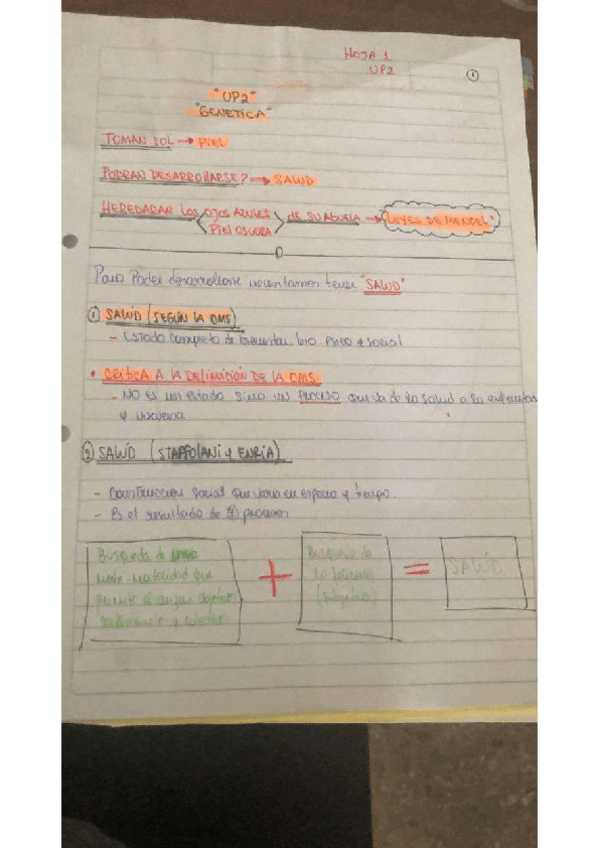 HOJA 1
UP2
1
"UP2"
"GENETICA"
TOMAN SOL → PIEL
PODRAN DESARROLLARSE? → SALUD
HEREDARAN LOS OJOS AZULES DE SU ABUELA → "LEYES DE MENDEL"
PIEL OSCURA
Para Poder desarrollarse necesitamos tener "SALUD"
① SALUD (SEGÚN LA OMS)
- Estado completo de bienestar bio psico y social
• CRITICA A LA DEFINICIÓN DE LA OMS
- NO es un estado sino un Proceso que va de la salud a la enfermedad
y viceversa
② SALUD (STAFFOLANI Y ENRIA)
- Construcción social que varia en espacio y tiempo.
- Es el resultado de ② procesos
Busqueda de
materialidad que
permite alcanzar objetivos
y colectivos
+
Busqueda de
lo
(subjetivo)
=
SALUD